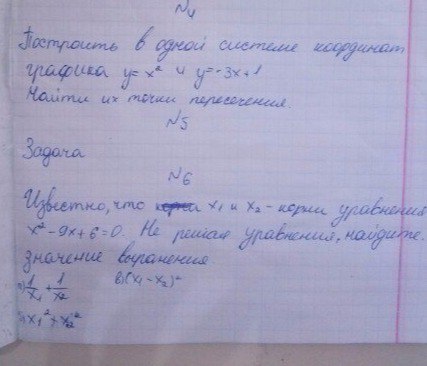 №4
Построить в одной системе координат
графика y=x² и y=-3x+1
Найти их точки пересечения.
№5
Задача
№6
Известно, что x₁ и x₂ - корни уравнения
x²-9x+6=0. Не решая уравнения, найдите
значение выражения
а) 1/x₁ + 1/x₂ в) (x₁-x₂)²
б) x₁²+x₂²